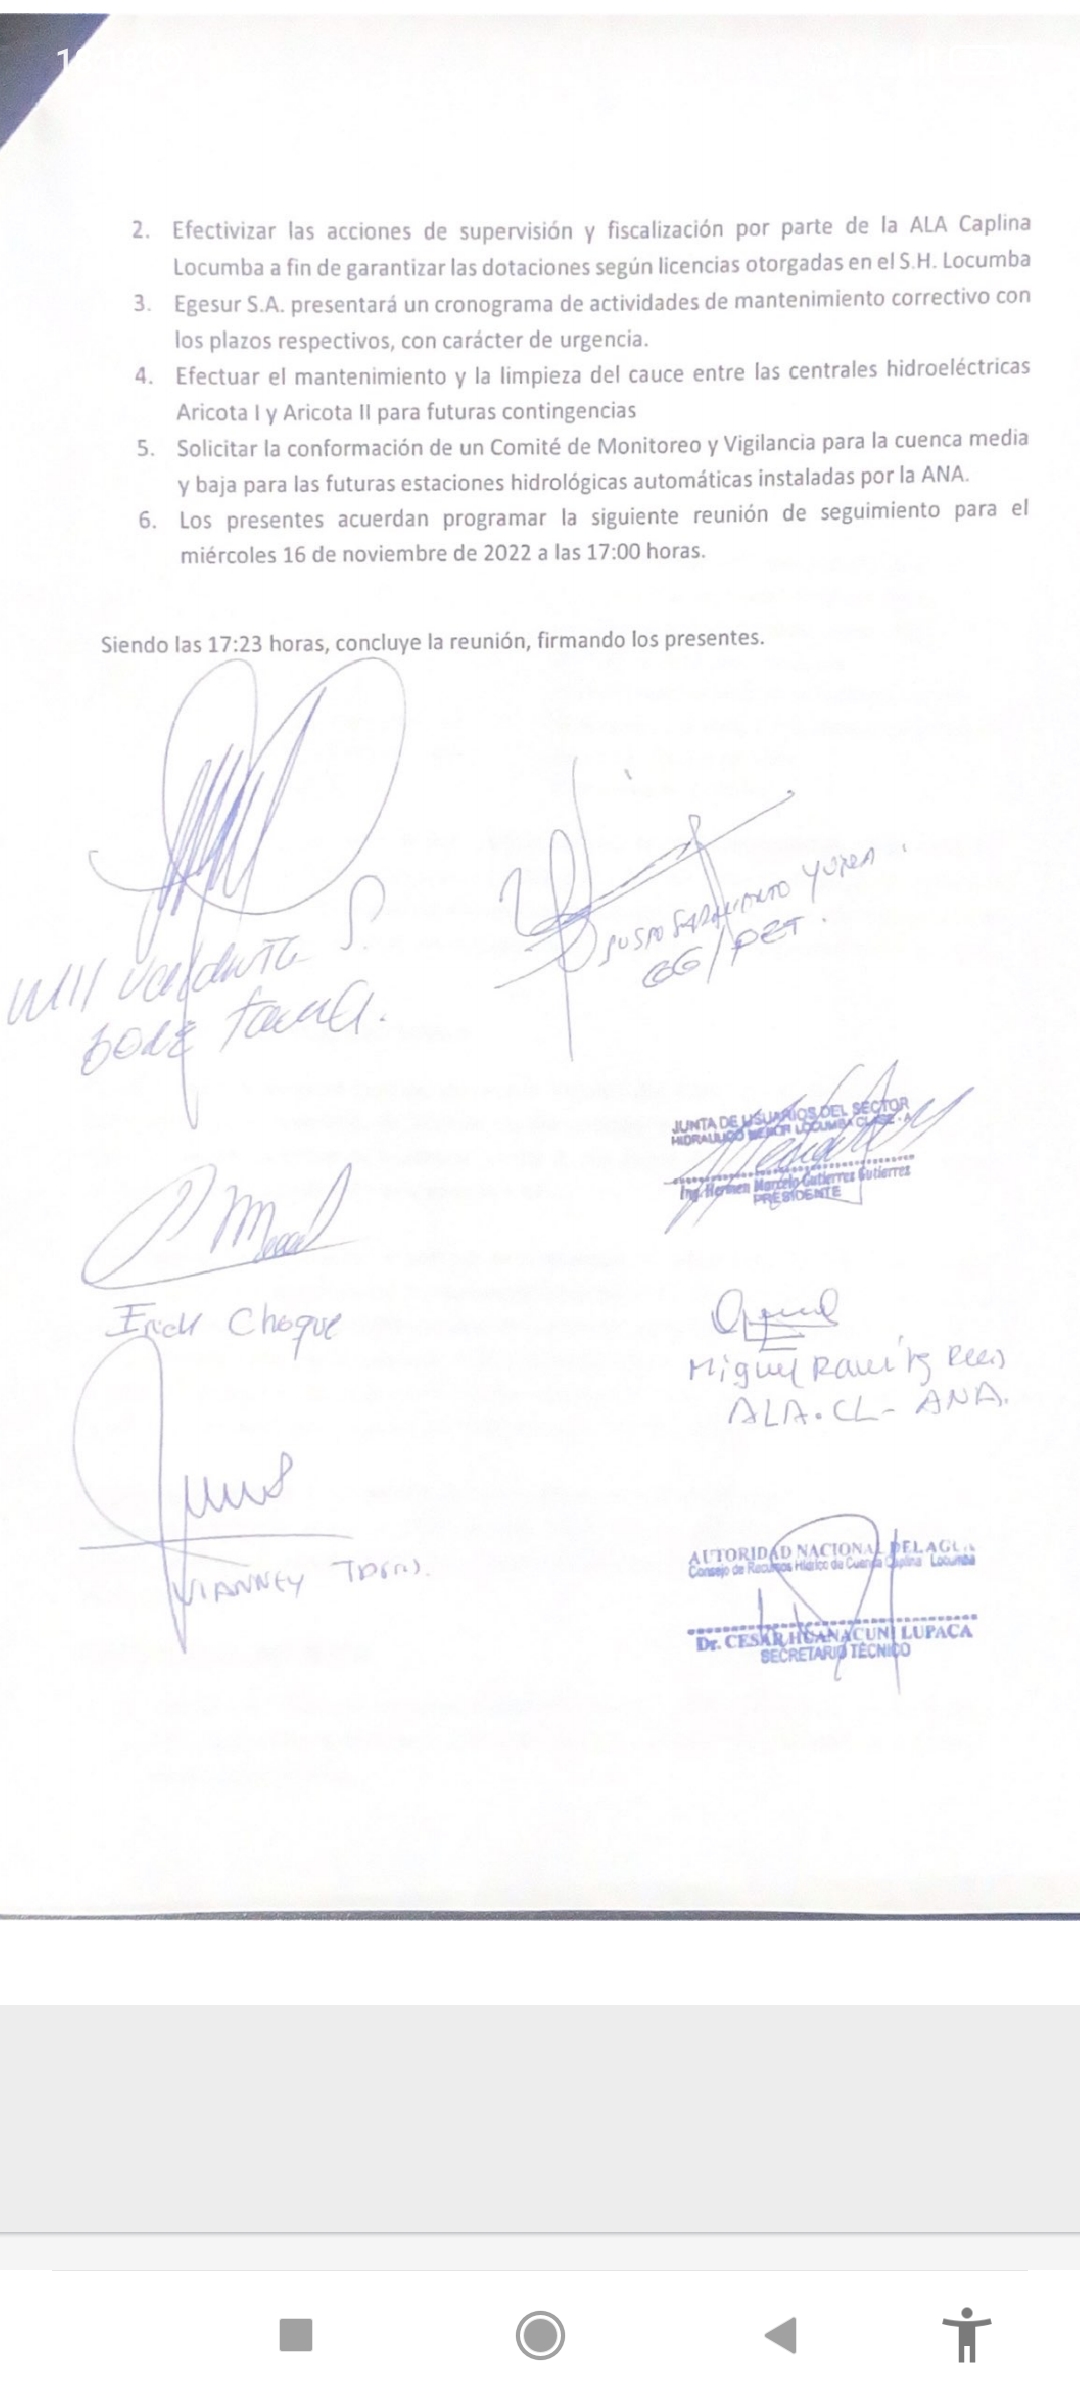 2. Efectivizar las acciones de supervisión y fiscalización por parte de la ALA Caplina
Locumba a fin de garantizar las dotaciones según licencias otorgadas en el S.H. Locumba
3. Egesur S.A. presentará un cronograma de actividades de mantenimiento correctivo con
los plazos respectivos, con carácter de urgencia.
4. Efectuar el mantenimiento y la limpieza del cauce entre las centrales hidroeléctricas
Aricota I y Aricota II para futuras contingencias
5. Solicitar la conformación de un Comité de Monitoreo y Vigilancia para la cuenca media
y baja para las futuras estaciones hidrológicas automáticas instaladas por la ANA.
6. Los presentes acuerdan programar la siguiente reunión de seguimiento para el
miércoles 16 de noviembre de 2022 a las 17:00 horas.
Siendo las 17:23 horas, concluye la reunión, firmando los presentes.
GG/PET.
JUNTA DE USUARIOS DEL SECTOR
HIDRAULICO MENOR LOCUMBA CLASE - A
Ing. Hermen Marcelo Gutierrez Gutierrez
PRESIDENTE
Choque
Miguel
ALA. CL - ANA.
VIANNEY
AUTORIDAD NACIONAL DEL AGUA
Consejo de Recursos Hídrico de Cuenca Caplina Locumba
Dr. CESAR HUANACUNI LUPACA
SECRETARIO TÉCNICO